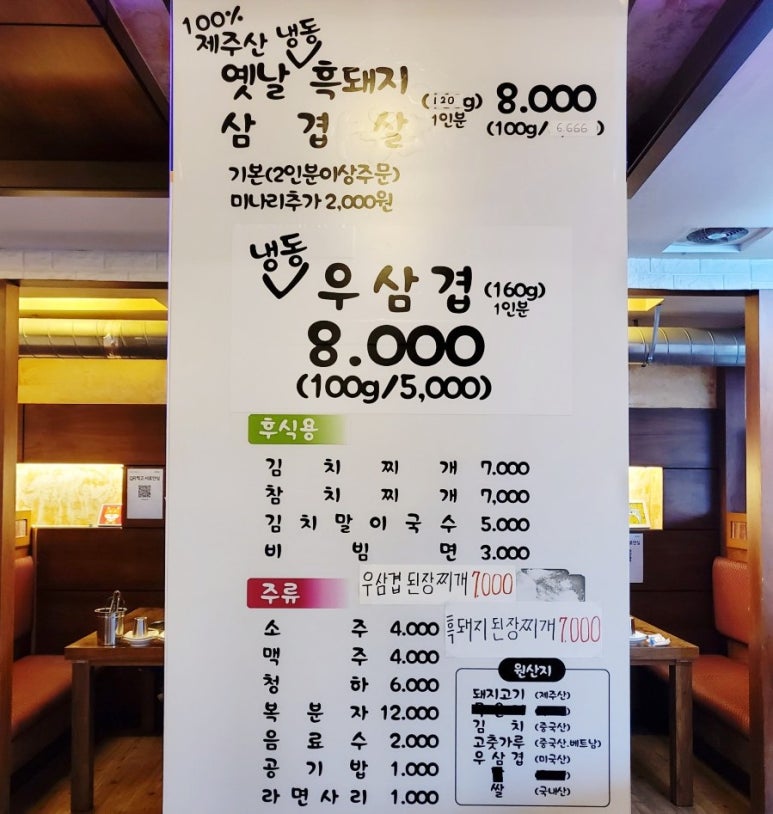 100%
제주산 냉동
옛날 흑돼지 (120g) 8.000
삼겹살 1인분 (100g/6,666)
기본(2인분이상주문)
미나리추가 2,000원
냉동
우삼겹 (160g)
1인분
8.000
(100g/5,000)
후식용
김치찌개 7.000
참치찌개 7,000
김치말이국수 5.000
비빔면 3.000
우삼겹 된장찌개 7000
주류
흑돼지 된장찌개 7.000
소주 4.000
맥주 4.000
청하 6.000
복분자 12.000
음료수 2.000
공기밥 1.000
라면사리 1.000
원산지
돼지고기 (제주산)
김치 (중국산)
고춧가루 (중국산,베트남)
우삼겹 (미국산)
쌀 (국내산)